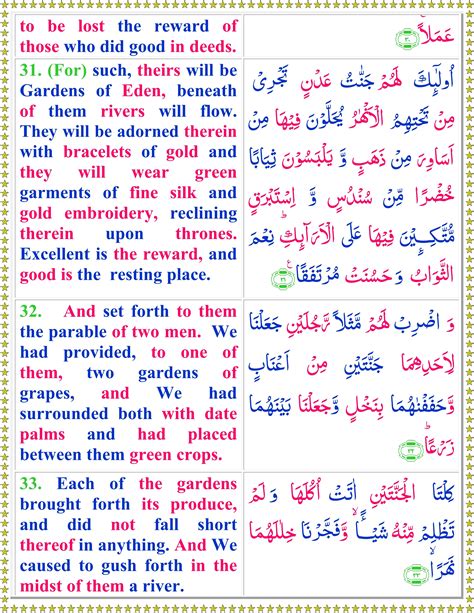 to be lost the reward of
those who did good in deeds.
عَمَلًا ۝٣٠
31. (For) such, theirs will be
Gardens of Eden, beneath
of them rivers will flow.
They will be adorned therein
with bracelets of gold and
they will wear green
garments of fine silk and
gold embroidery, reclining
therein upon thrones.
Excellent is the reward, and
good is the resting place.
أُولٰٓئِكَ لَهُمْ جَنّٰتُ عَدْنٍ تَجْرِىْ
مِنْ تَحْتِهِمُ الْاَنْهٰرُ يُحَلَّوْنَ فِيْهَا مِنْ
اَسَاوِرَ مِنْ ذَهَبٍ وَّ يَلْبَسُوْنَ ثِيَابًا
خُضْرًا مِّنْ سُنْدُسٍ وَّ اِسْتَبْرَقٍ
مُّتَّكِـِٕيْنَ فِيْهَا عَلَى الْاَرَآٮِٕكِ ؕ نِعْمَ
الثَّوَابُ ؕ وَ حَسُنَتْ مُرْتَفَقًا ۝٣١
32. And set forth to them
the parable of two men. We
had provided, to one of
them, two gardens of
grapes, and We had
surrounded both with date
palms and had placed
between them green crops.
وَ اضْرِبْ لَهُمْ مَّثَلًا رَّجُلَيْنِ جَعَلْنَا
لِاَحَدِهِمَا جَنَّتَيْنِ مِنْ اَعْنَابٍ
وَّحَفَفْنٰهُمَا بِنَخْلٍ وَّجَعَلْنَا بَيْنَهُمَا
زَرْعًا ؕ ۝٣٢
33. Each of the gardens
brought forth its produce,
and did not fall short
thereof in anything. And We
caused to gush forth in the
midst of them a river.
كِلْتَا الْجَنَّتَيْنِ اٰتَتْ اُكُلَهَا وَ لَمْ
تَظْلِمْ مِّنْهُ شَيْـًٔا ۙ وَّفَجَّرْنَا خِلٰلَهُمَا
نَهَرًا ۝٣٣